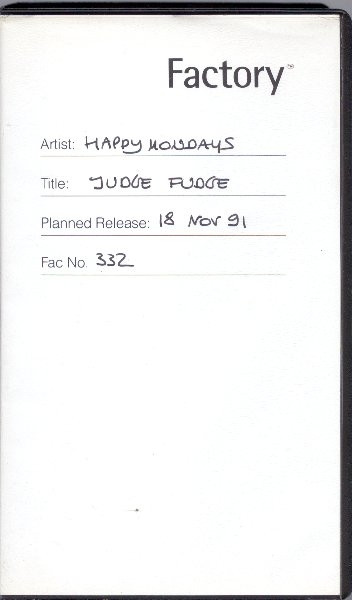 Factory™
Artist: HAPPY MONDAYS
Title: JUDGE FUDGE
Planned Release: 18 NOV 91
Fac No. 332